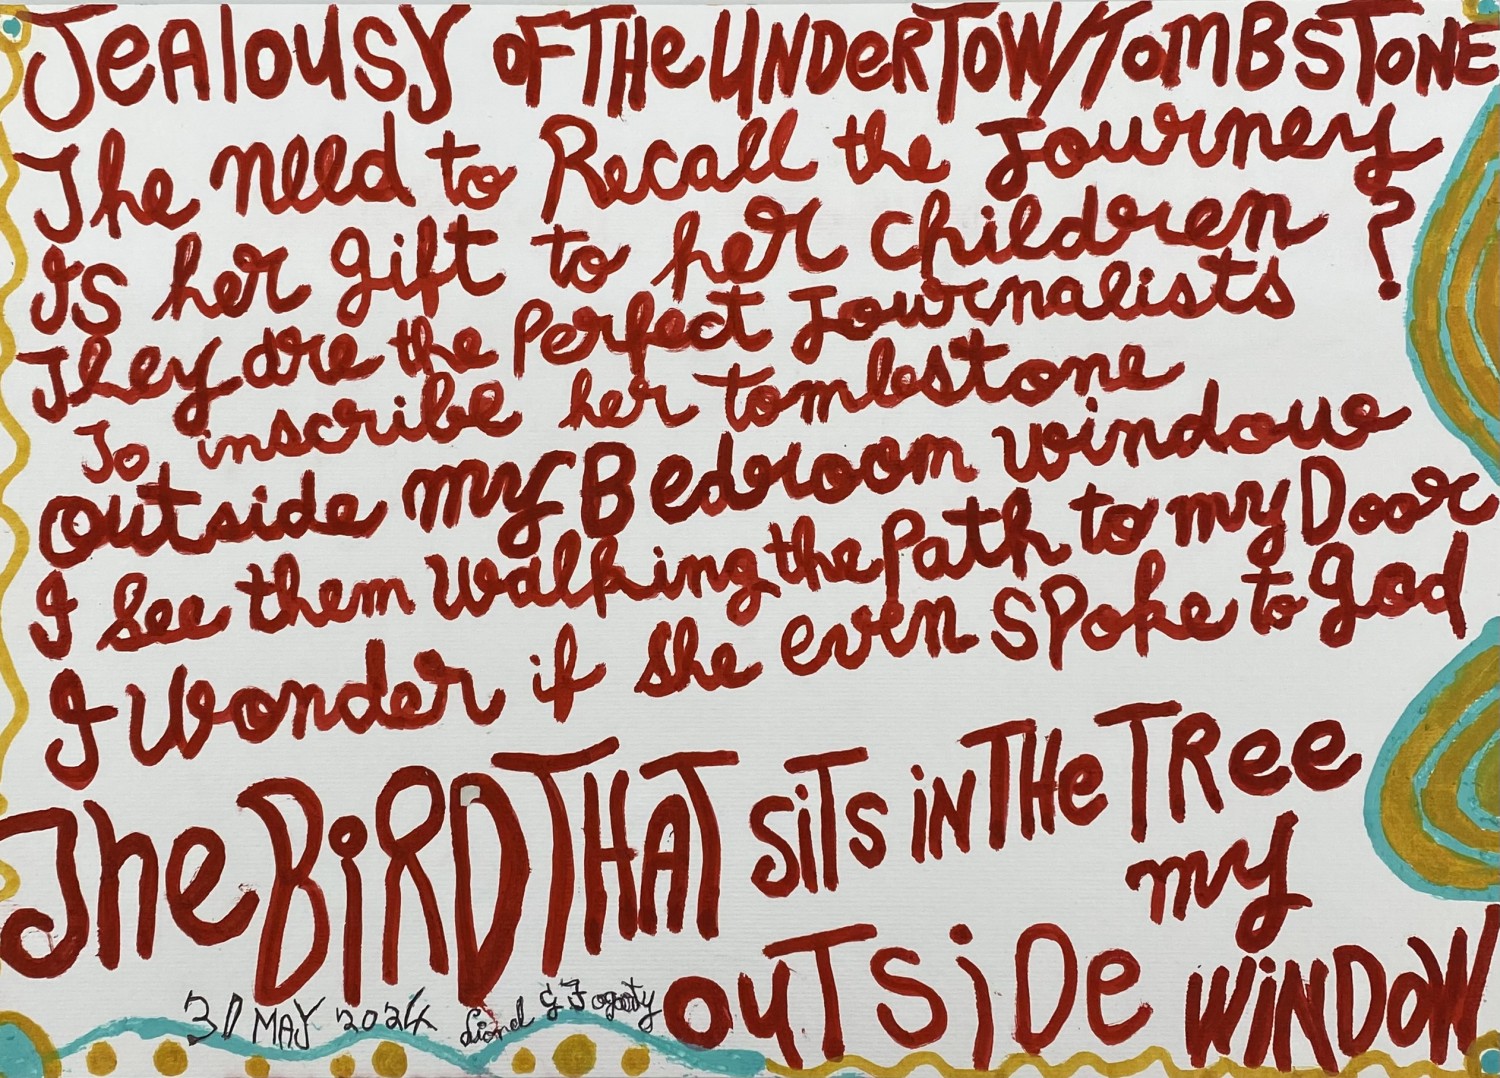 JeAlOUSY OF THe UNDeRTOW/TOMBSTONE
The need to Recall the Journey
Is her gift to her children ?
They are the Perfect Journalists
To inscribe her tombstone
Outside my Bedroom window
I see them walking the Path to my Door
I wonder if she even spoke to god
The BiRD THAT SiTS iN THe TRee
ouTSiDe my WiNDOW
31 MAY 2024 Lionel G Fogarty